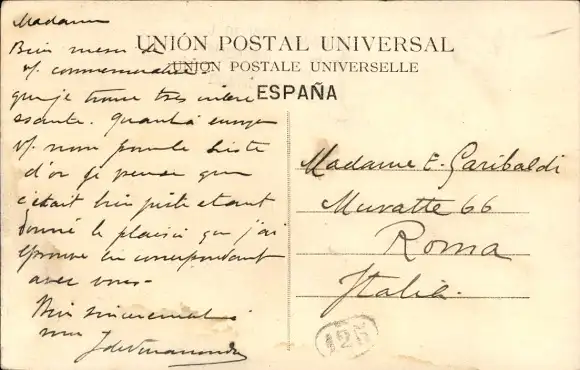 Madame
UNIÓN POSTAL UNIVERSAL
UNION POSTALE UNIVERSELLE
ESPAÑA
Bien merci de
v/ commemorative.
que je trouve très intére
ssante. Quant à envoyer
v/ nom pour la Liste
d'or je pense que
c'était bien juste etant
donné le plaisir que j'ai
éprouvé en correspondant
avec vous.
Bien sincerement
Madame E. Garibaldi
Muratte 66
Roma
Italia.
125